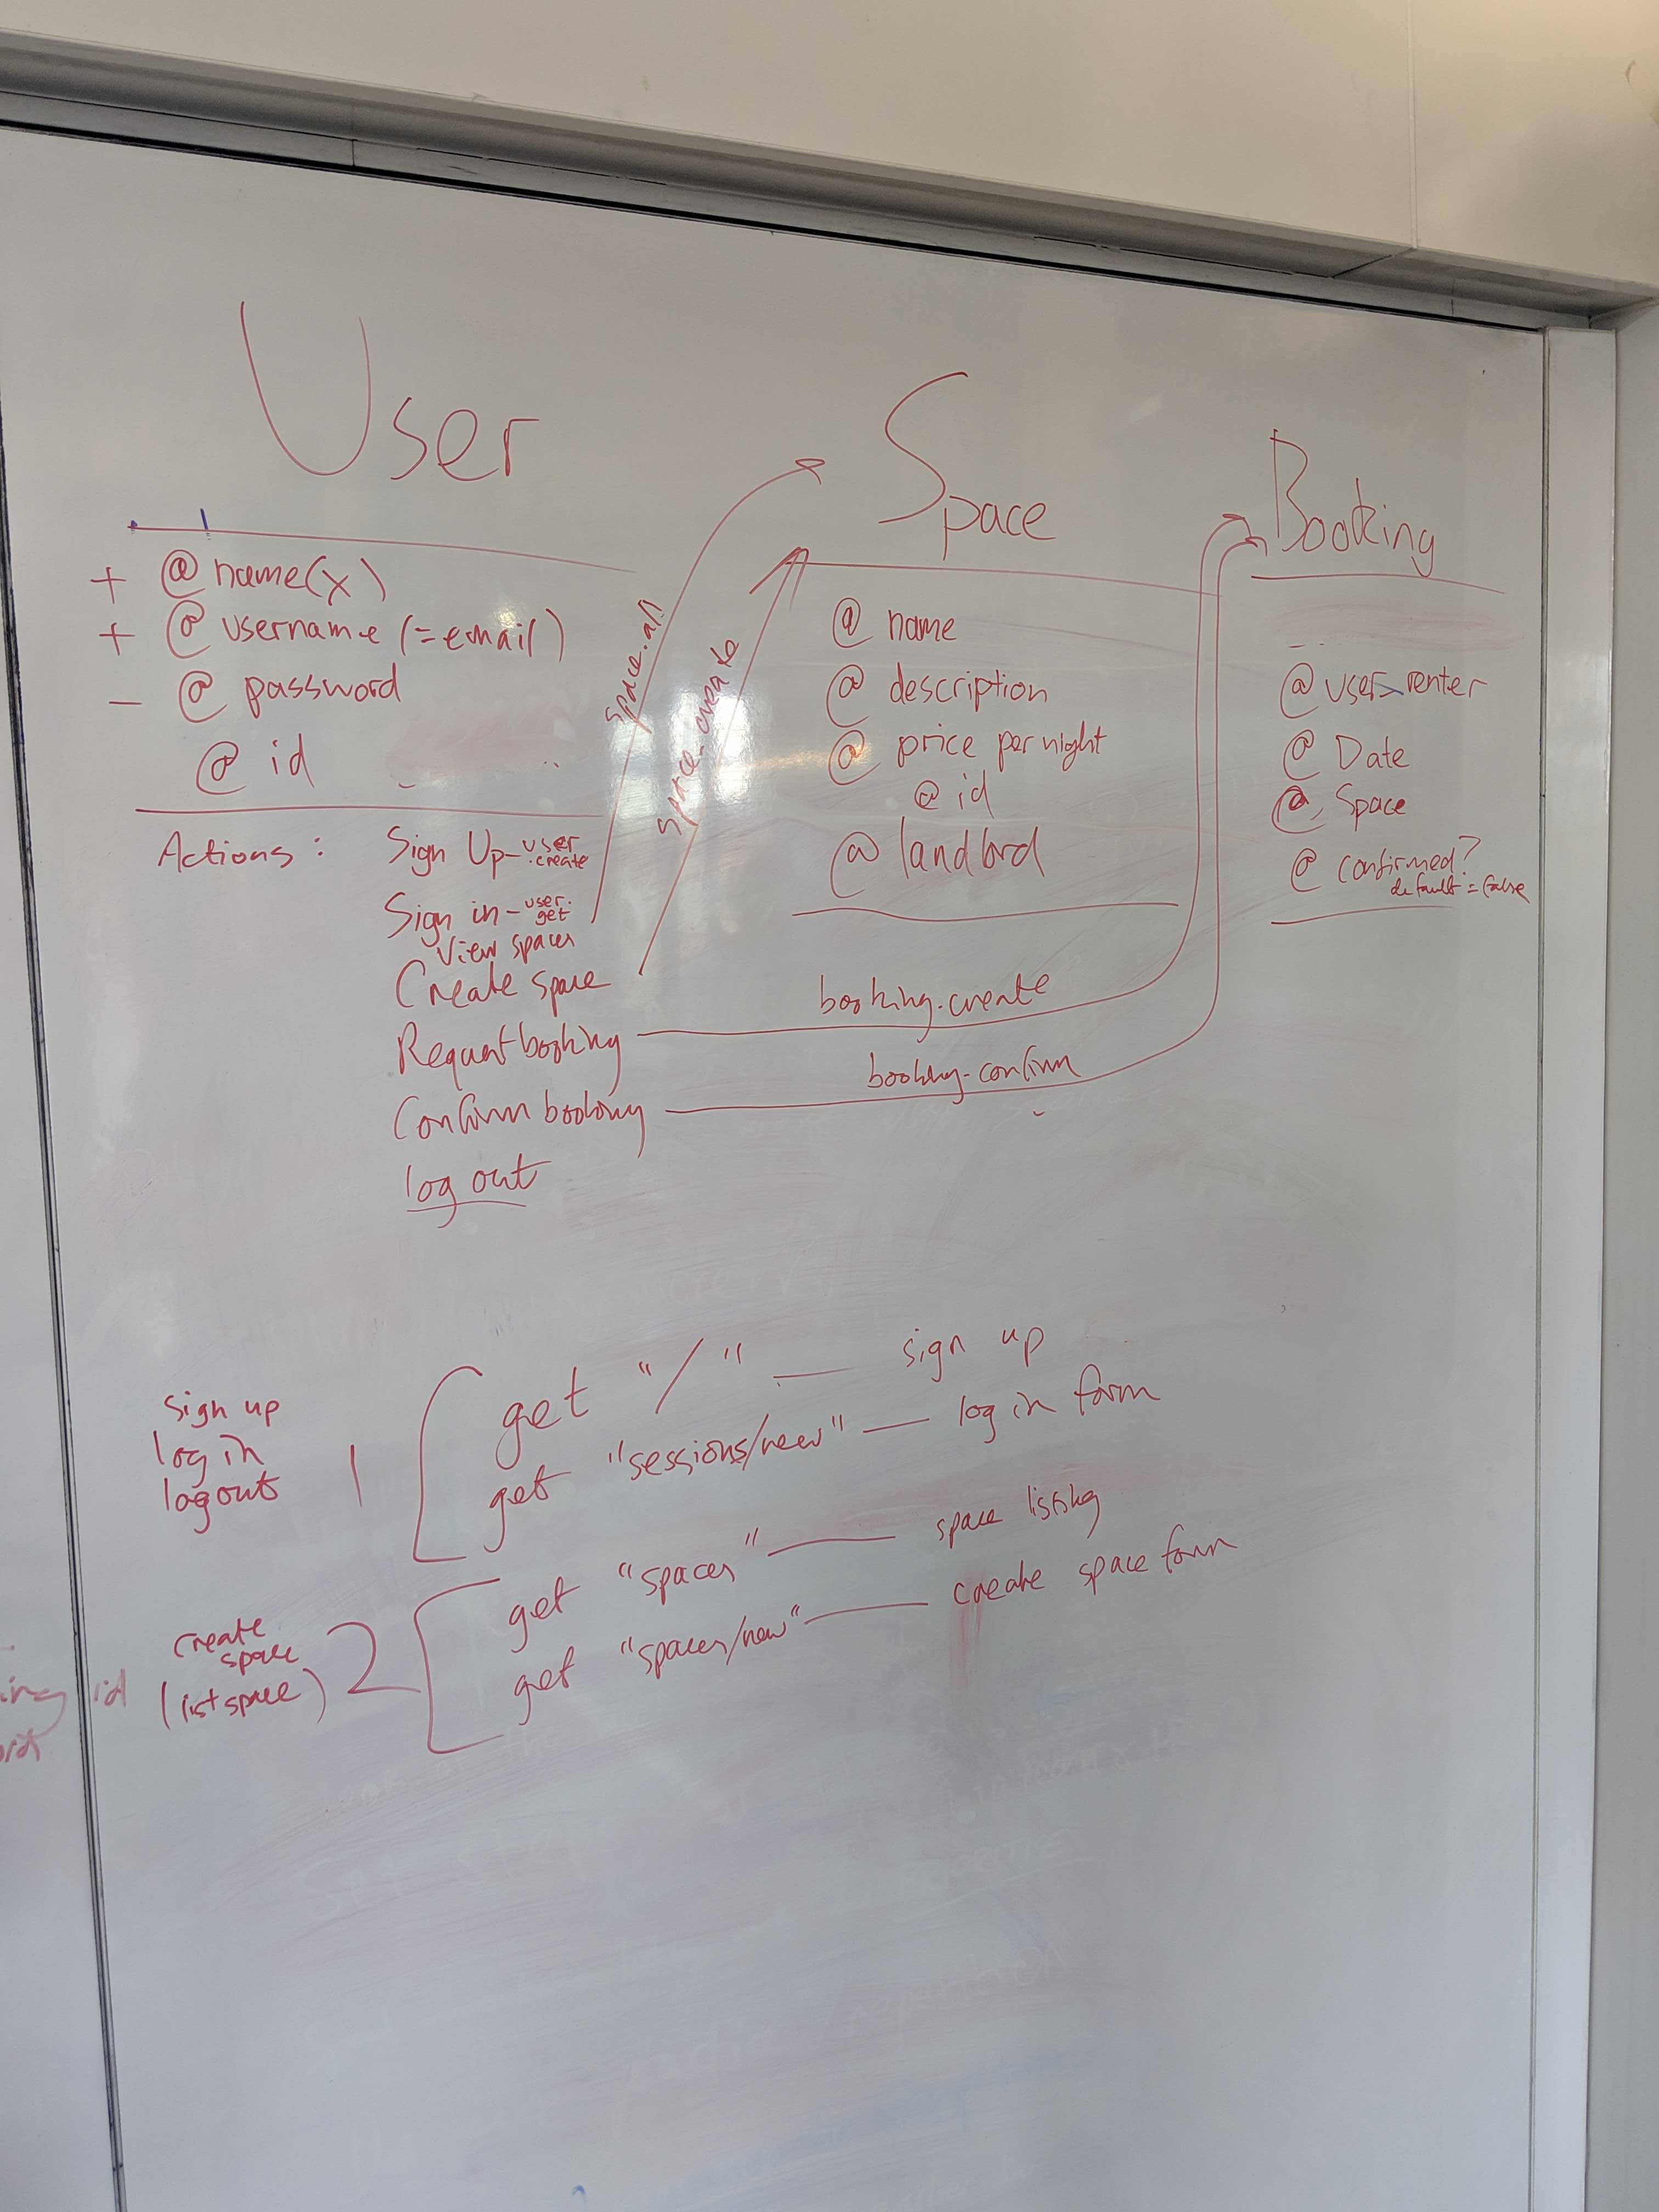 User
+ @ name(x)
+ @ username (=email)
- @ password
@ id
Actions :
Sign Up - user.create
Sign in - user.get
View spaces
Create space
Request booking
Confirm booking
log out
space.all
space.create
Space
@ name
@ description
@ price per night
@ id
@ landlord
booking.create
booking.confirm
Booking
@ user_renter
@ Date
@ Space
@ confirmed?
default = false
sign up
log in
logout
1
get "/" — sign up
get "sessions/new" — log in form
create
space
(list space)
2
get "spaces" — space listing
get "spaces/new" — create space form
id